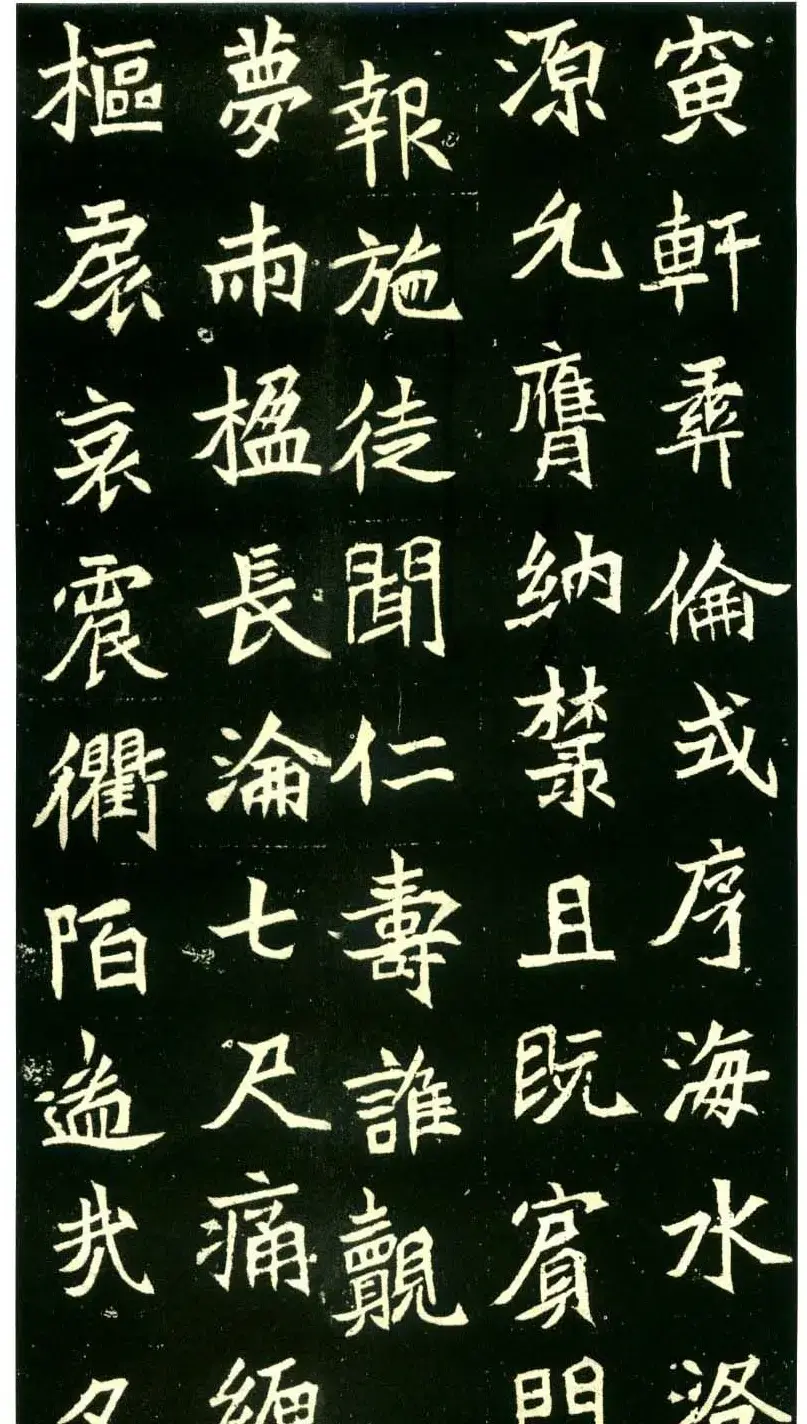 寅軒彝倫式序海水洛
源允膺納麓且既賓門
報施徒聞仁壽誰覿
夢兩楹長淪七尺痛緬
樞扆哀震衢陌夕